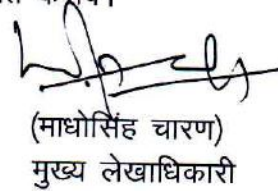 (माधोसिंह चारण)
मुख्य लेखाधिकारी